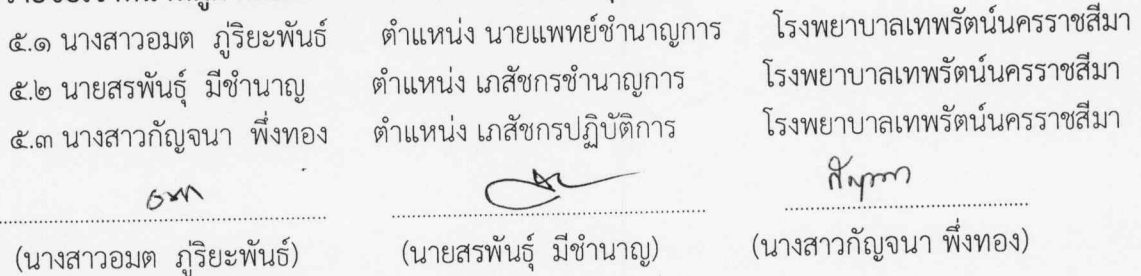 ๕.๑ นางสาวอมต ภูริยะพันธ์ ตำแหน่ง นายแพทย์ชำนาญการ โรงพยาบาลเทพรัตน์นครราชสีมา
๕.๒ นายสรพันธุ์ มีชำนาญ ตำแหน่ง เภสัชกรชำนาญการ โรงพยาบาลเทพรัตน์นครราชสีมา
๕.๓ นางสาวกัญจนา พึ่งทอง ตำแหน่ง เภสัชกรปฏิบัติการ โรงพยาบาลเทพรัตน์นครราชสีมา
(นางสาวอมต ภู่ริยะพันธ์) (นายสรพันธุ์ มีชำนาญ) (นางสาวกัญจนา พึ่งทอง)